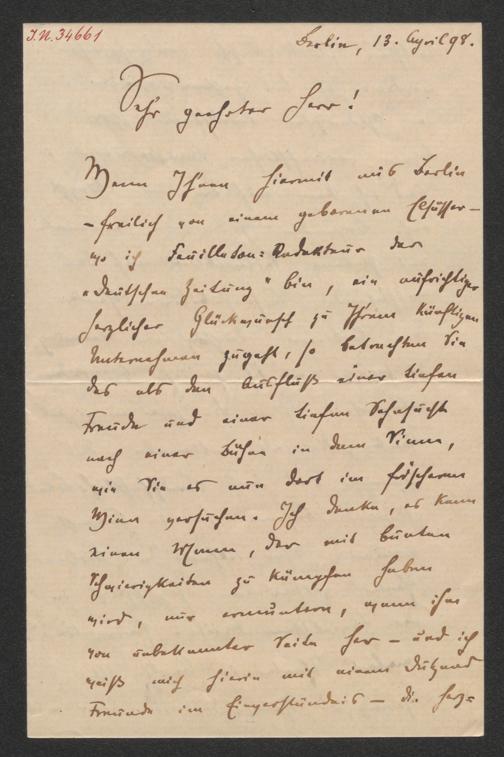 J.N. 34661
Berlin, 13. April 98.
Sehr geehrter Herr!
Wenn Ihnen hiermit aus Berlin
– freilich von einem geborenen Elsässer –
wo ich Feuilleton-Redakteur der
"Deutschen Zeitung" bin, ein aufrichtiger
herzlicher Glückwunsch zu Ihrem künftigen
Unternehmen zugeht, so betrachten Sie
das als den Ausfluß einer tiefen
Freude und einer tiefen Sehnsucht
nach einer Bühne in dem Sinne,
wie Sie es nun dort im frischeren
Wien versuchen. Ich denke, es kann
einen Mann, der mit bunten
Schwierigkeiten zu kämpfen haben
wird, nur ermuntern, wenn ihm
von unbekannter Seite her – und ich
weiß mich hierin mit einem Dutzend
Freunde im Einverständnis – die herz-